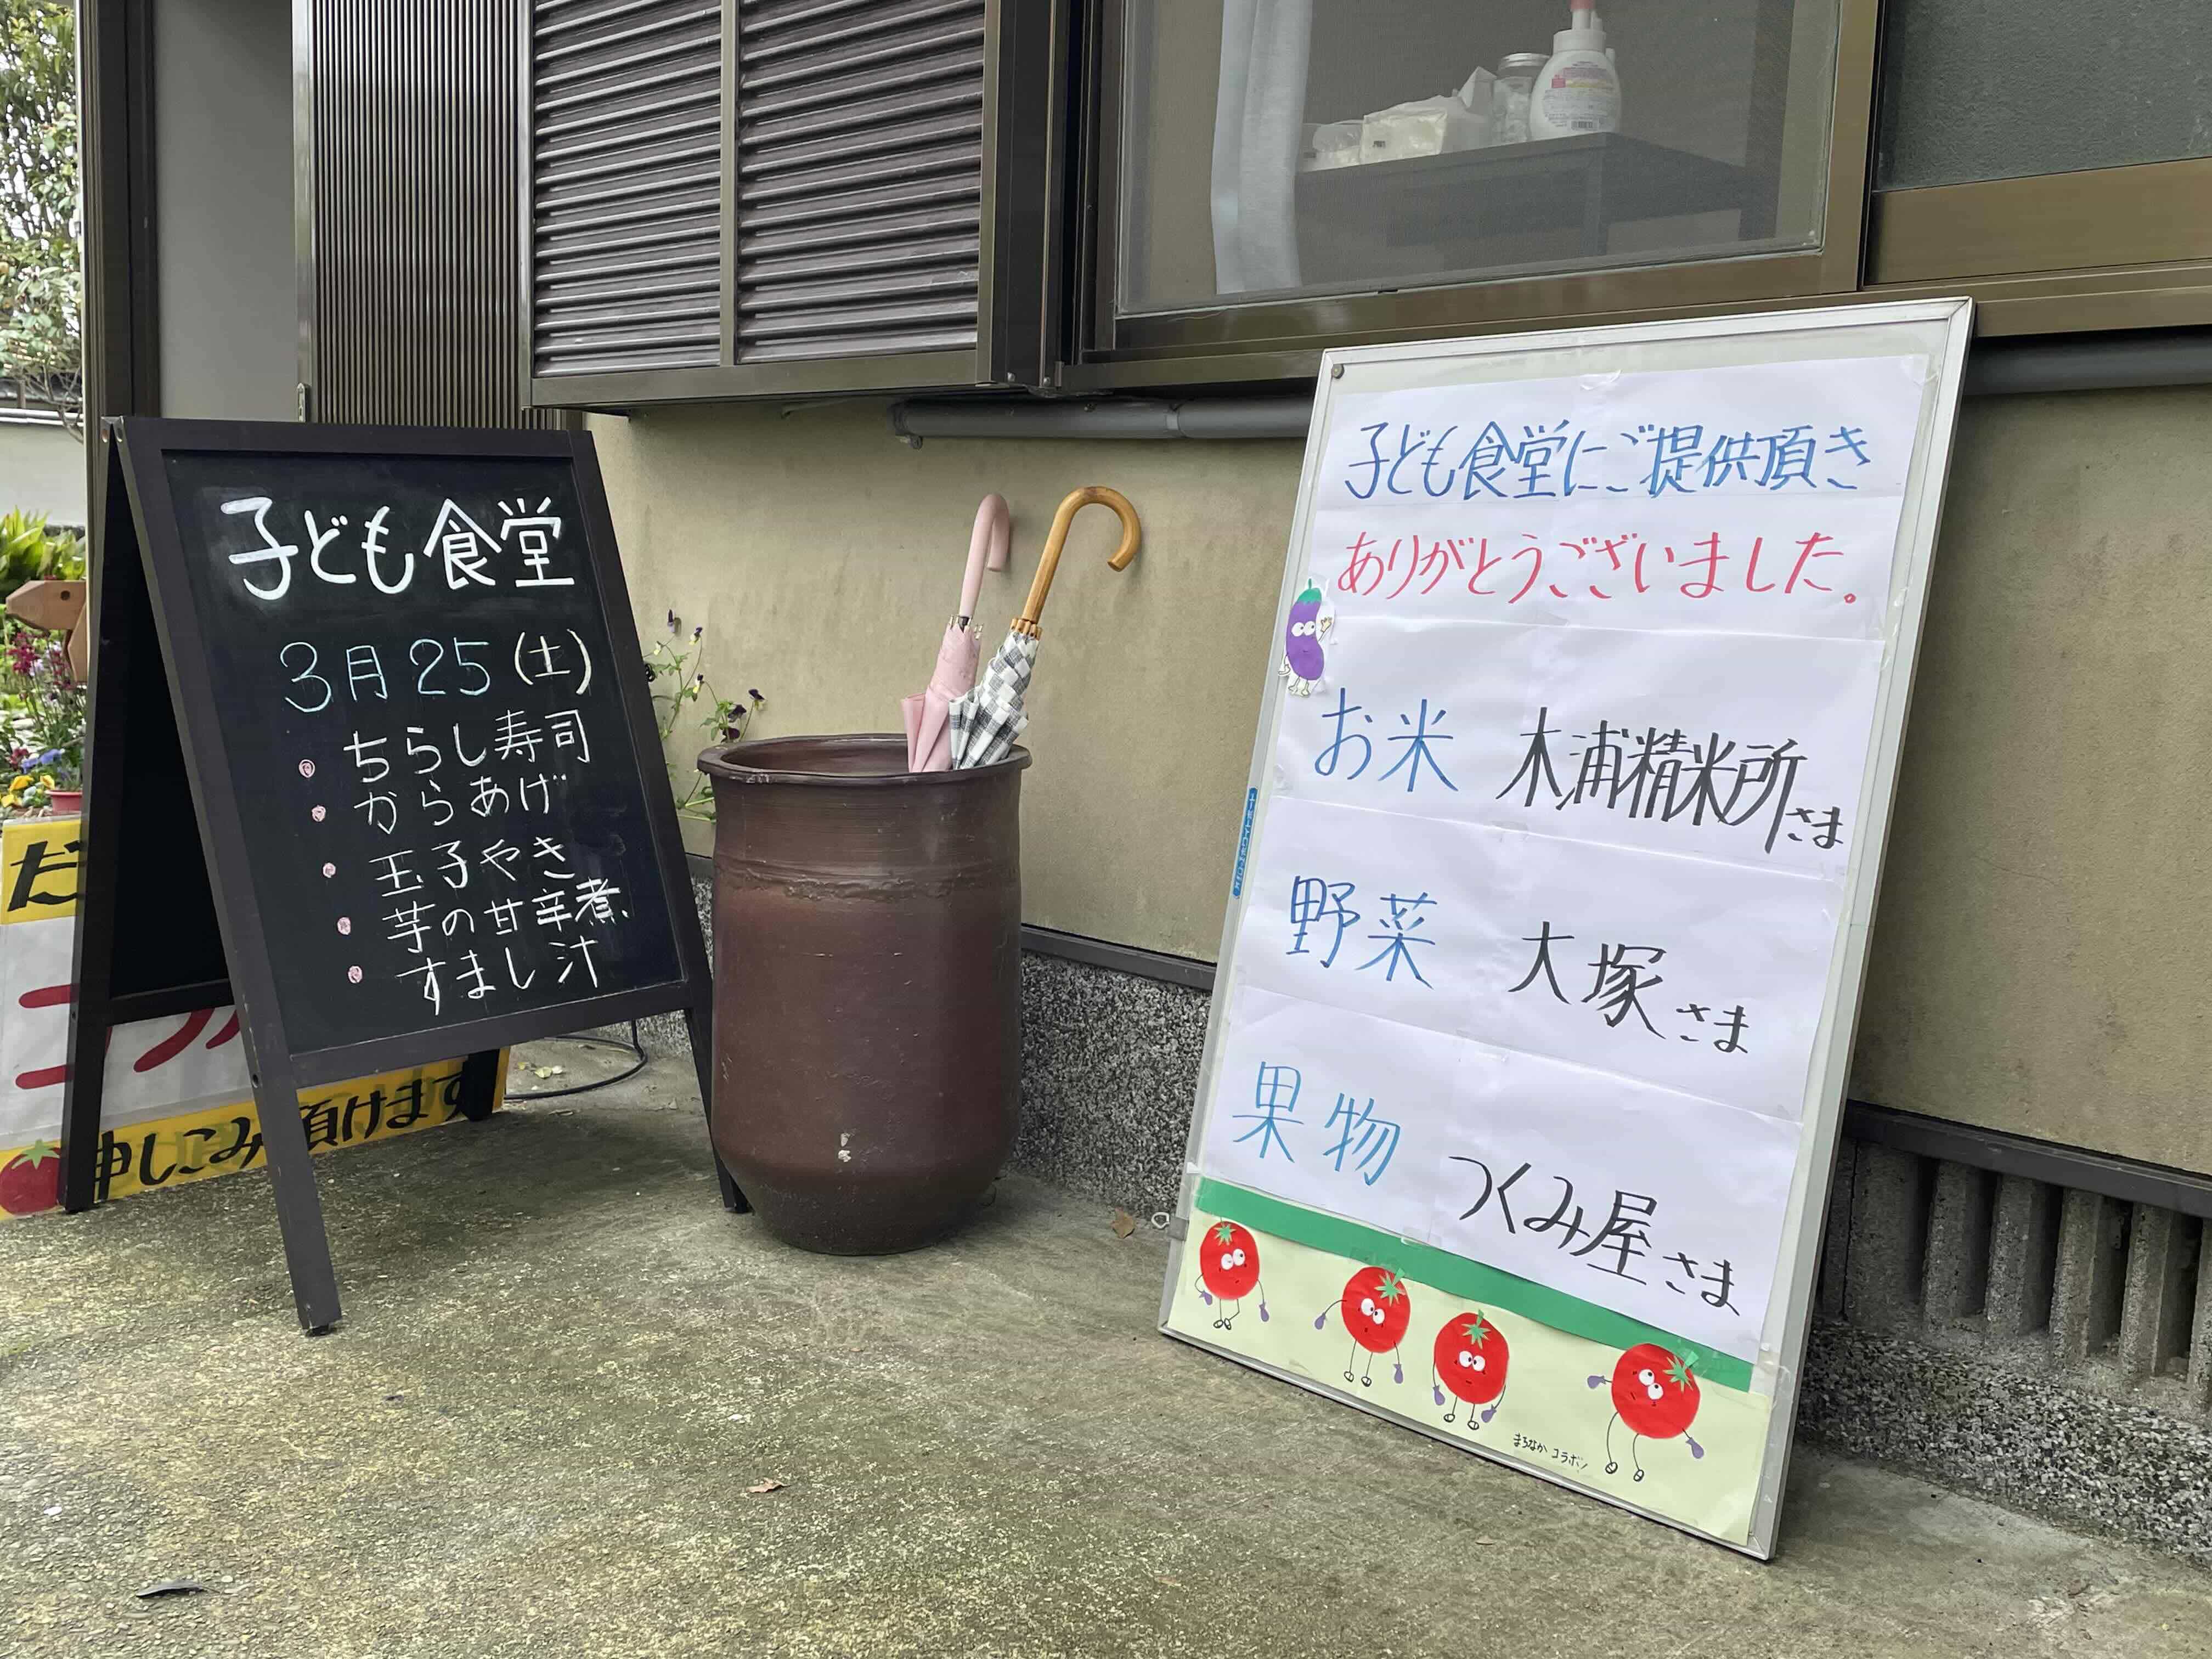 子ども食堂
3月25(土)
• ちらし寿司
• からあげ
• 玉子やき
• 芋の甘辛煮
• すまし汁
申しこみ頂けます
子ども食堂にご提供頂き
ありがとうございました。
お米 木浦精米所さま
野菜 大塚さま
果物 つくみ屋さま
まちなか コラボ!